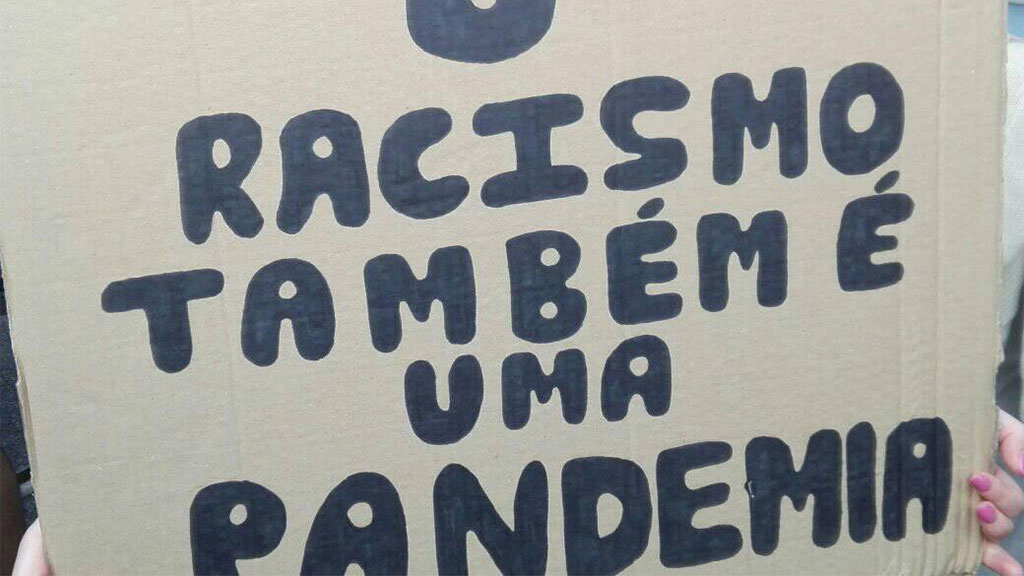 O
RACISMO
TAMBÉM É
UMA
PANDEMIA